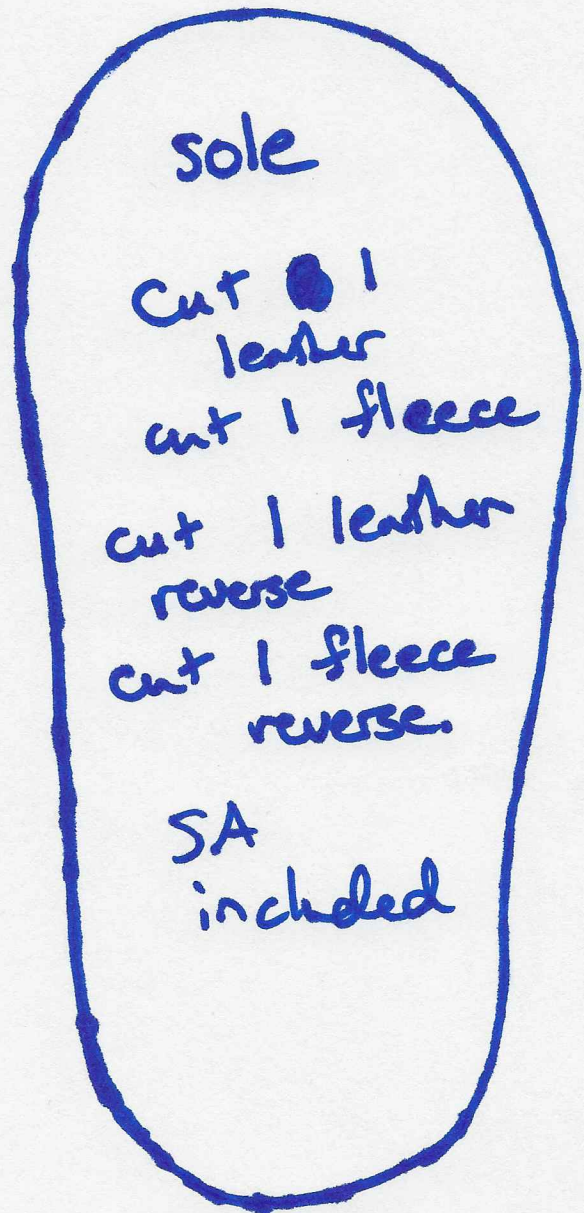 sole
Cut 1
leather
cut 1 fleece
cut 1 leather
reverse
cut 1 fleece
reverse.
SA
included